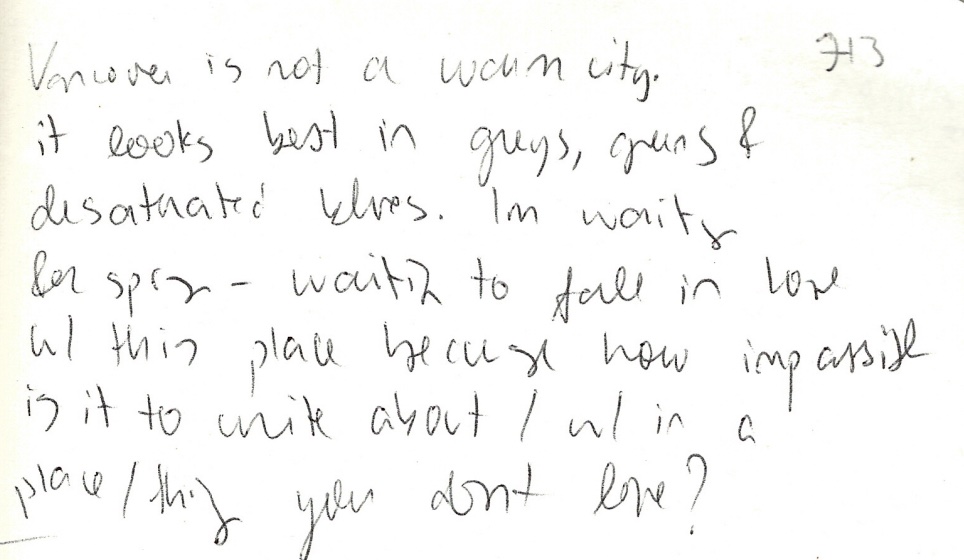 713
Vancouver is not a warm city.
it looks best in greys, greens &
desaturated blues. Im waiting
for spring - waiting to fall in love
w/ this place because how impossible
is it to write about / w/ in a
place/thing you dont love?